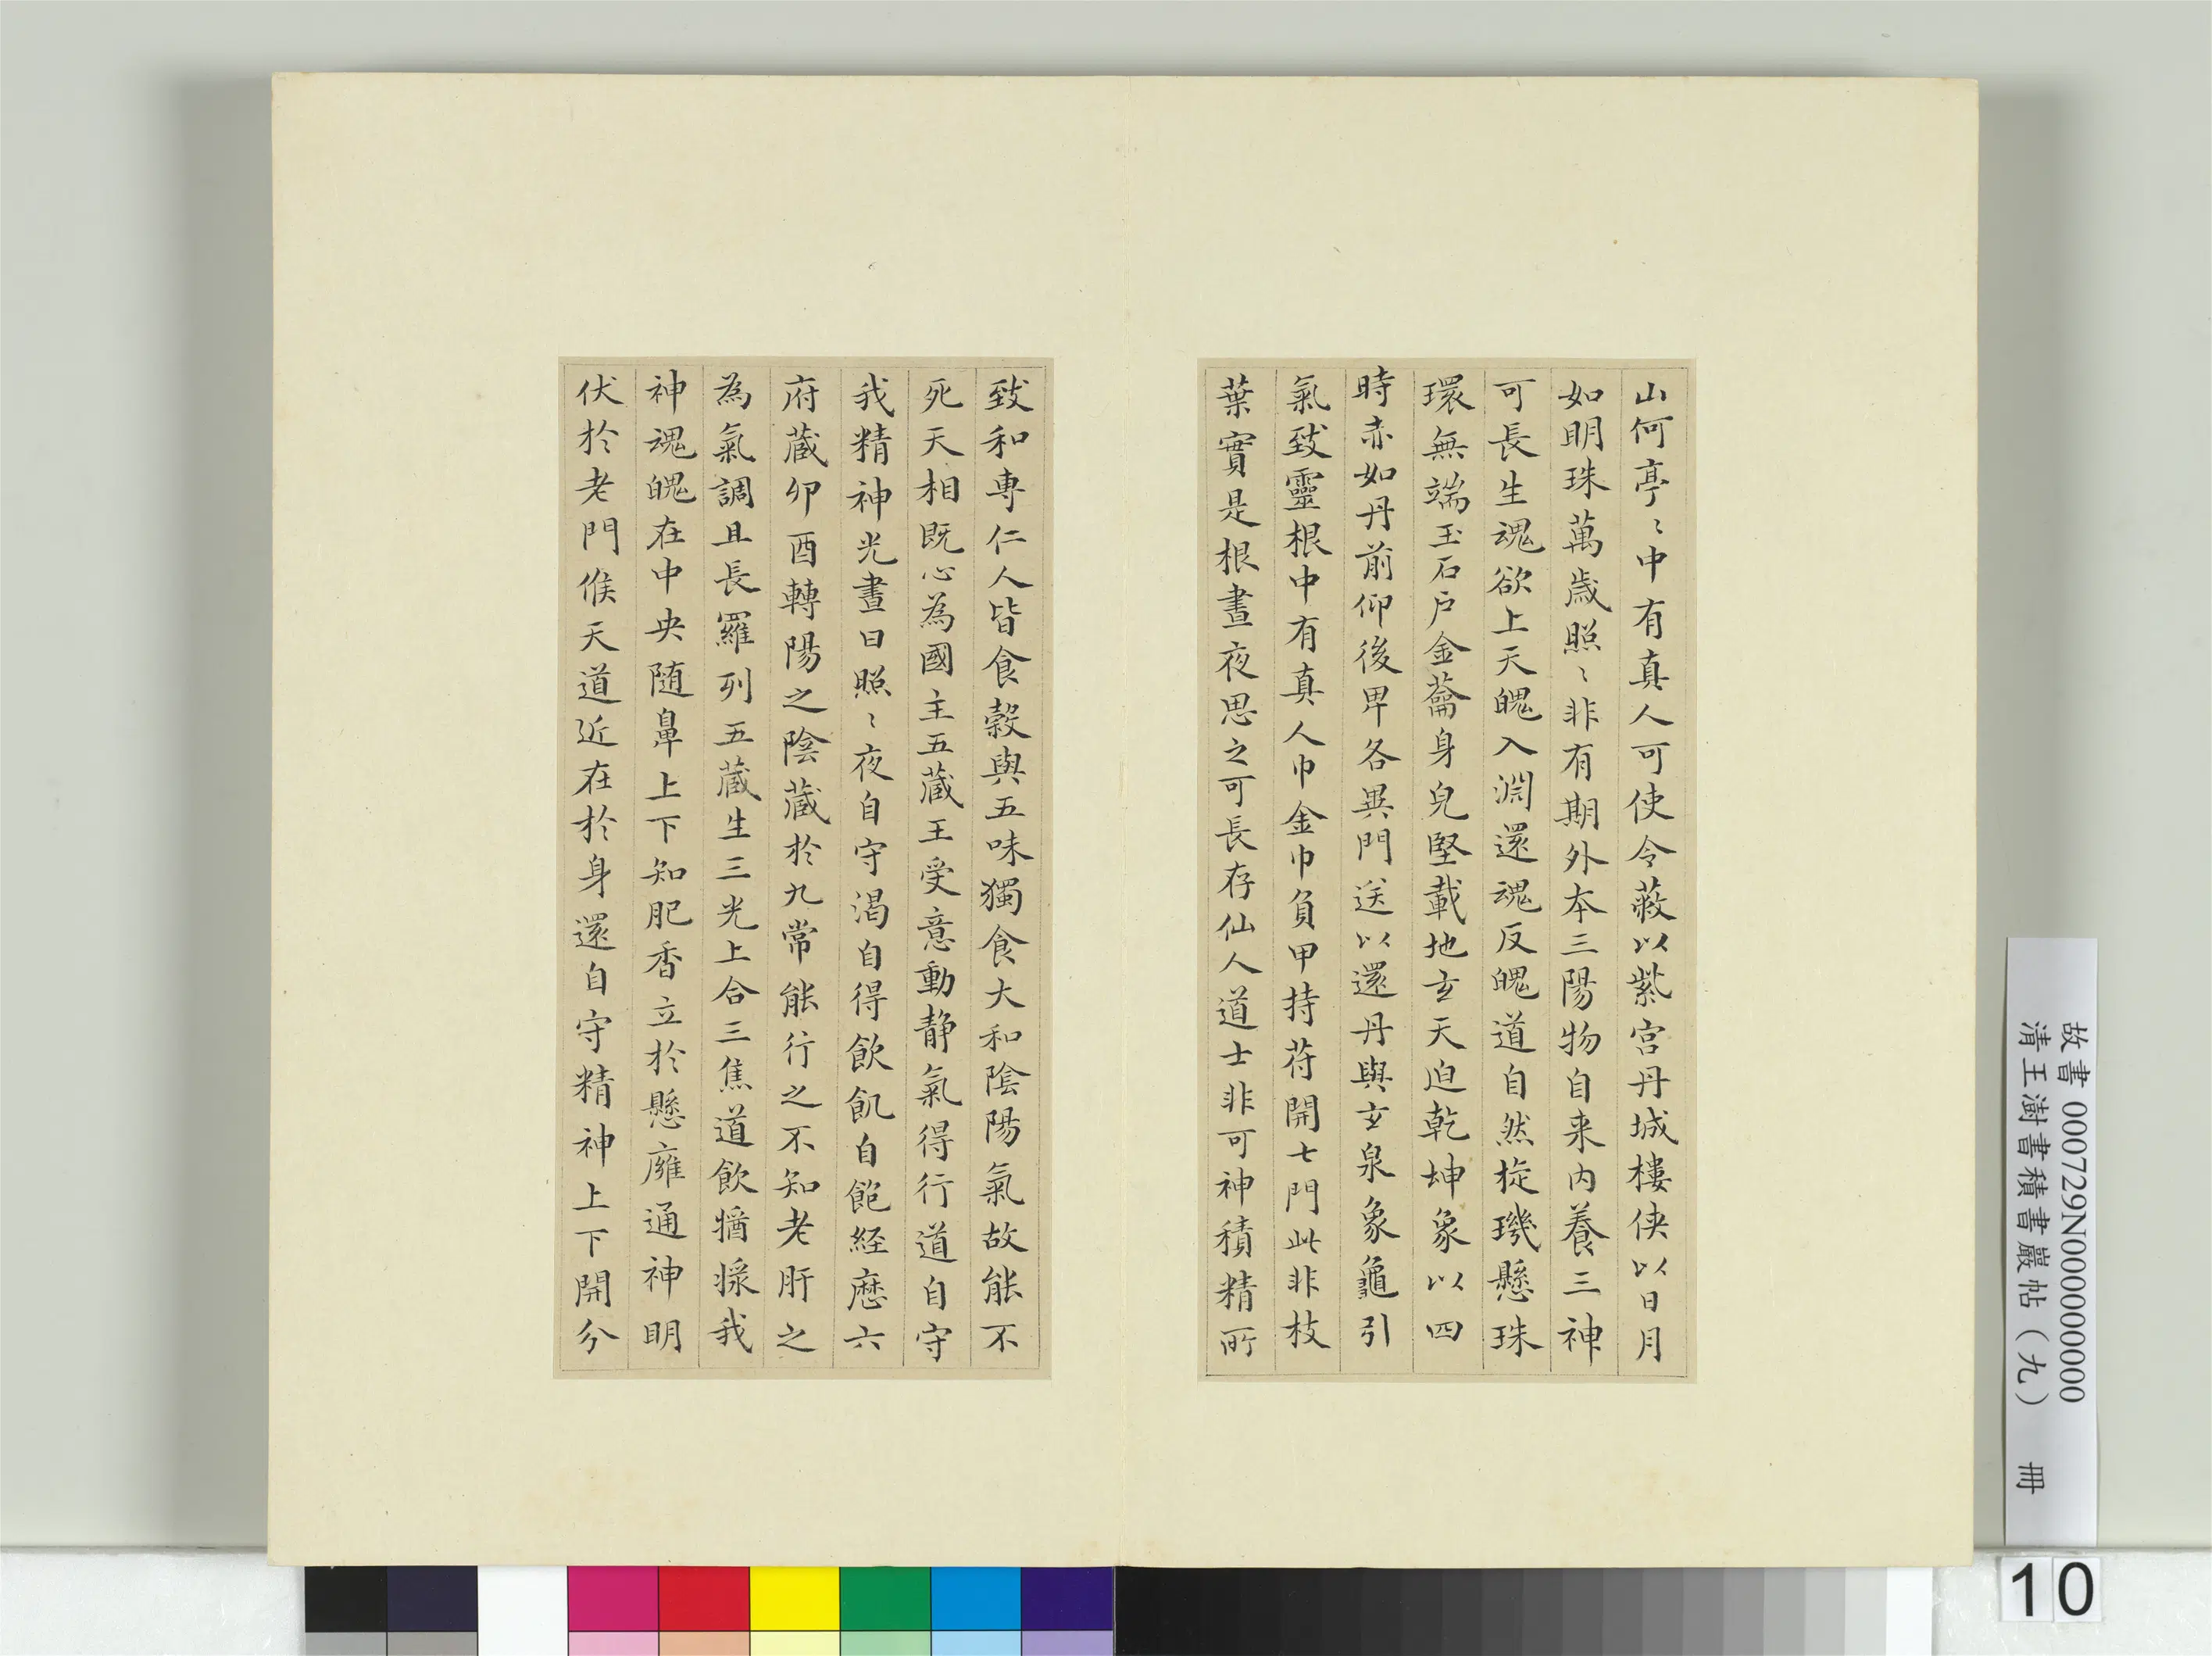 山何亭〻中有真人可使令蔽以紫宮丹城樓俠以日月
如明珠萬歲照〻非有期外本三陽物自来內養三神
可長生魂欲上天魄入淵還魂反魄道自然㫌璣懸珠
環無端玉石戶金蘥身皃堅載地玄天迫乾坤象以四
時赤如丹前仰後卑各異門送以還丹與玄泉象龜引
氣致靈根中有真人巾金巾負甲持苻開七門此非枝
葉實是根晝夜思之可長存仙人道士非可神積精所
致和專仁人皆食穀與五味獨食大和陰陽氣故能不
死天相既心為國主五藏王受意動静氣得行道自守
我精神光晝日照〻夜自守渴自得飲飢自飽経歷六
府藏卯酉轉陽之陰藏於九常能行之不知老肝之
為氣調且長羅列五藏生三光上合三焦道飲
我
神魂魄在中央随鼻上下知肥香立於懸廱通神明
伏於老門候天道近在於身還自守精神上下開分
故書 000729N000000000
清王澍書積書巖帖（九） 冊
10